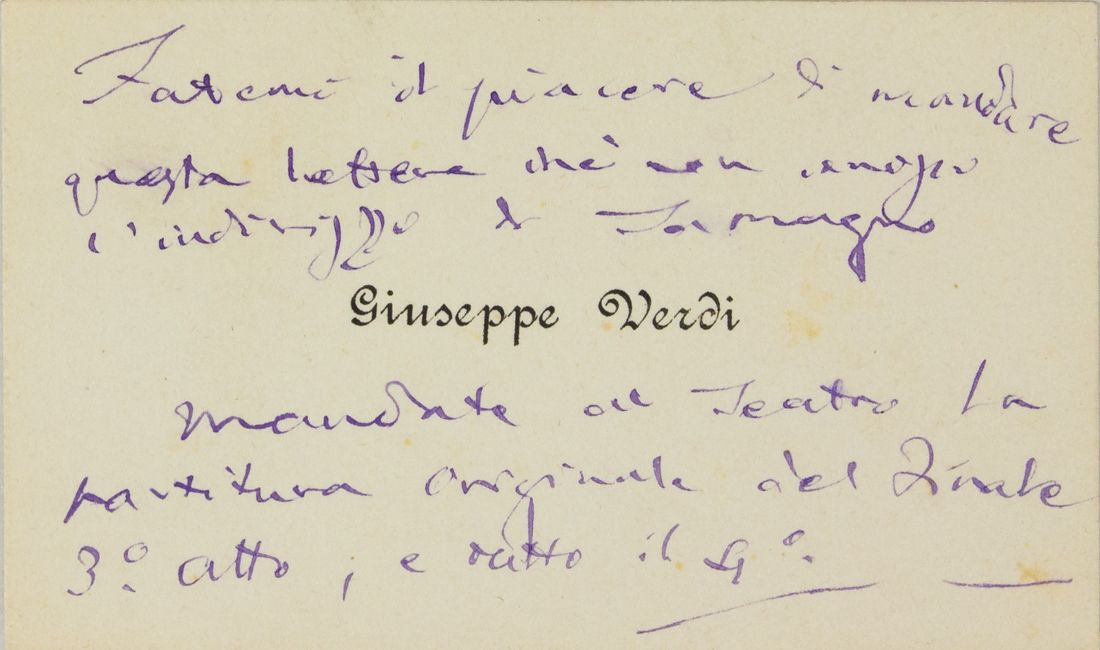 Fatemi il piacere di mandare
questa lettera chè non conosco
l'indirizzo di Tamagno
Giuseppe Verdi
Mandate al Teatro la
partitura originale del Finale
3.º atto, e tutto il 4º.